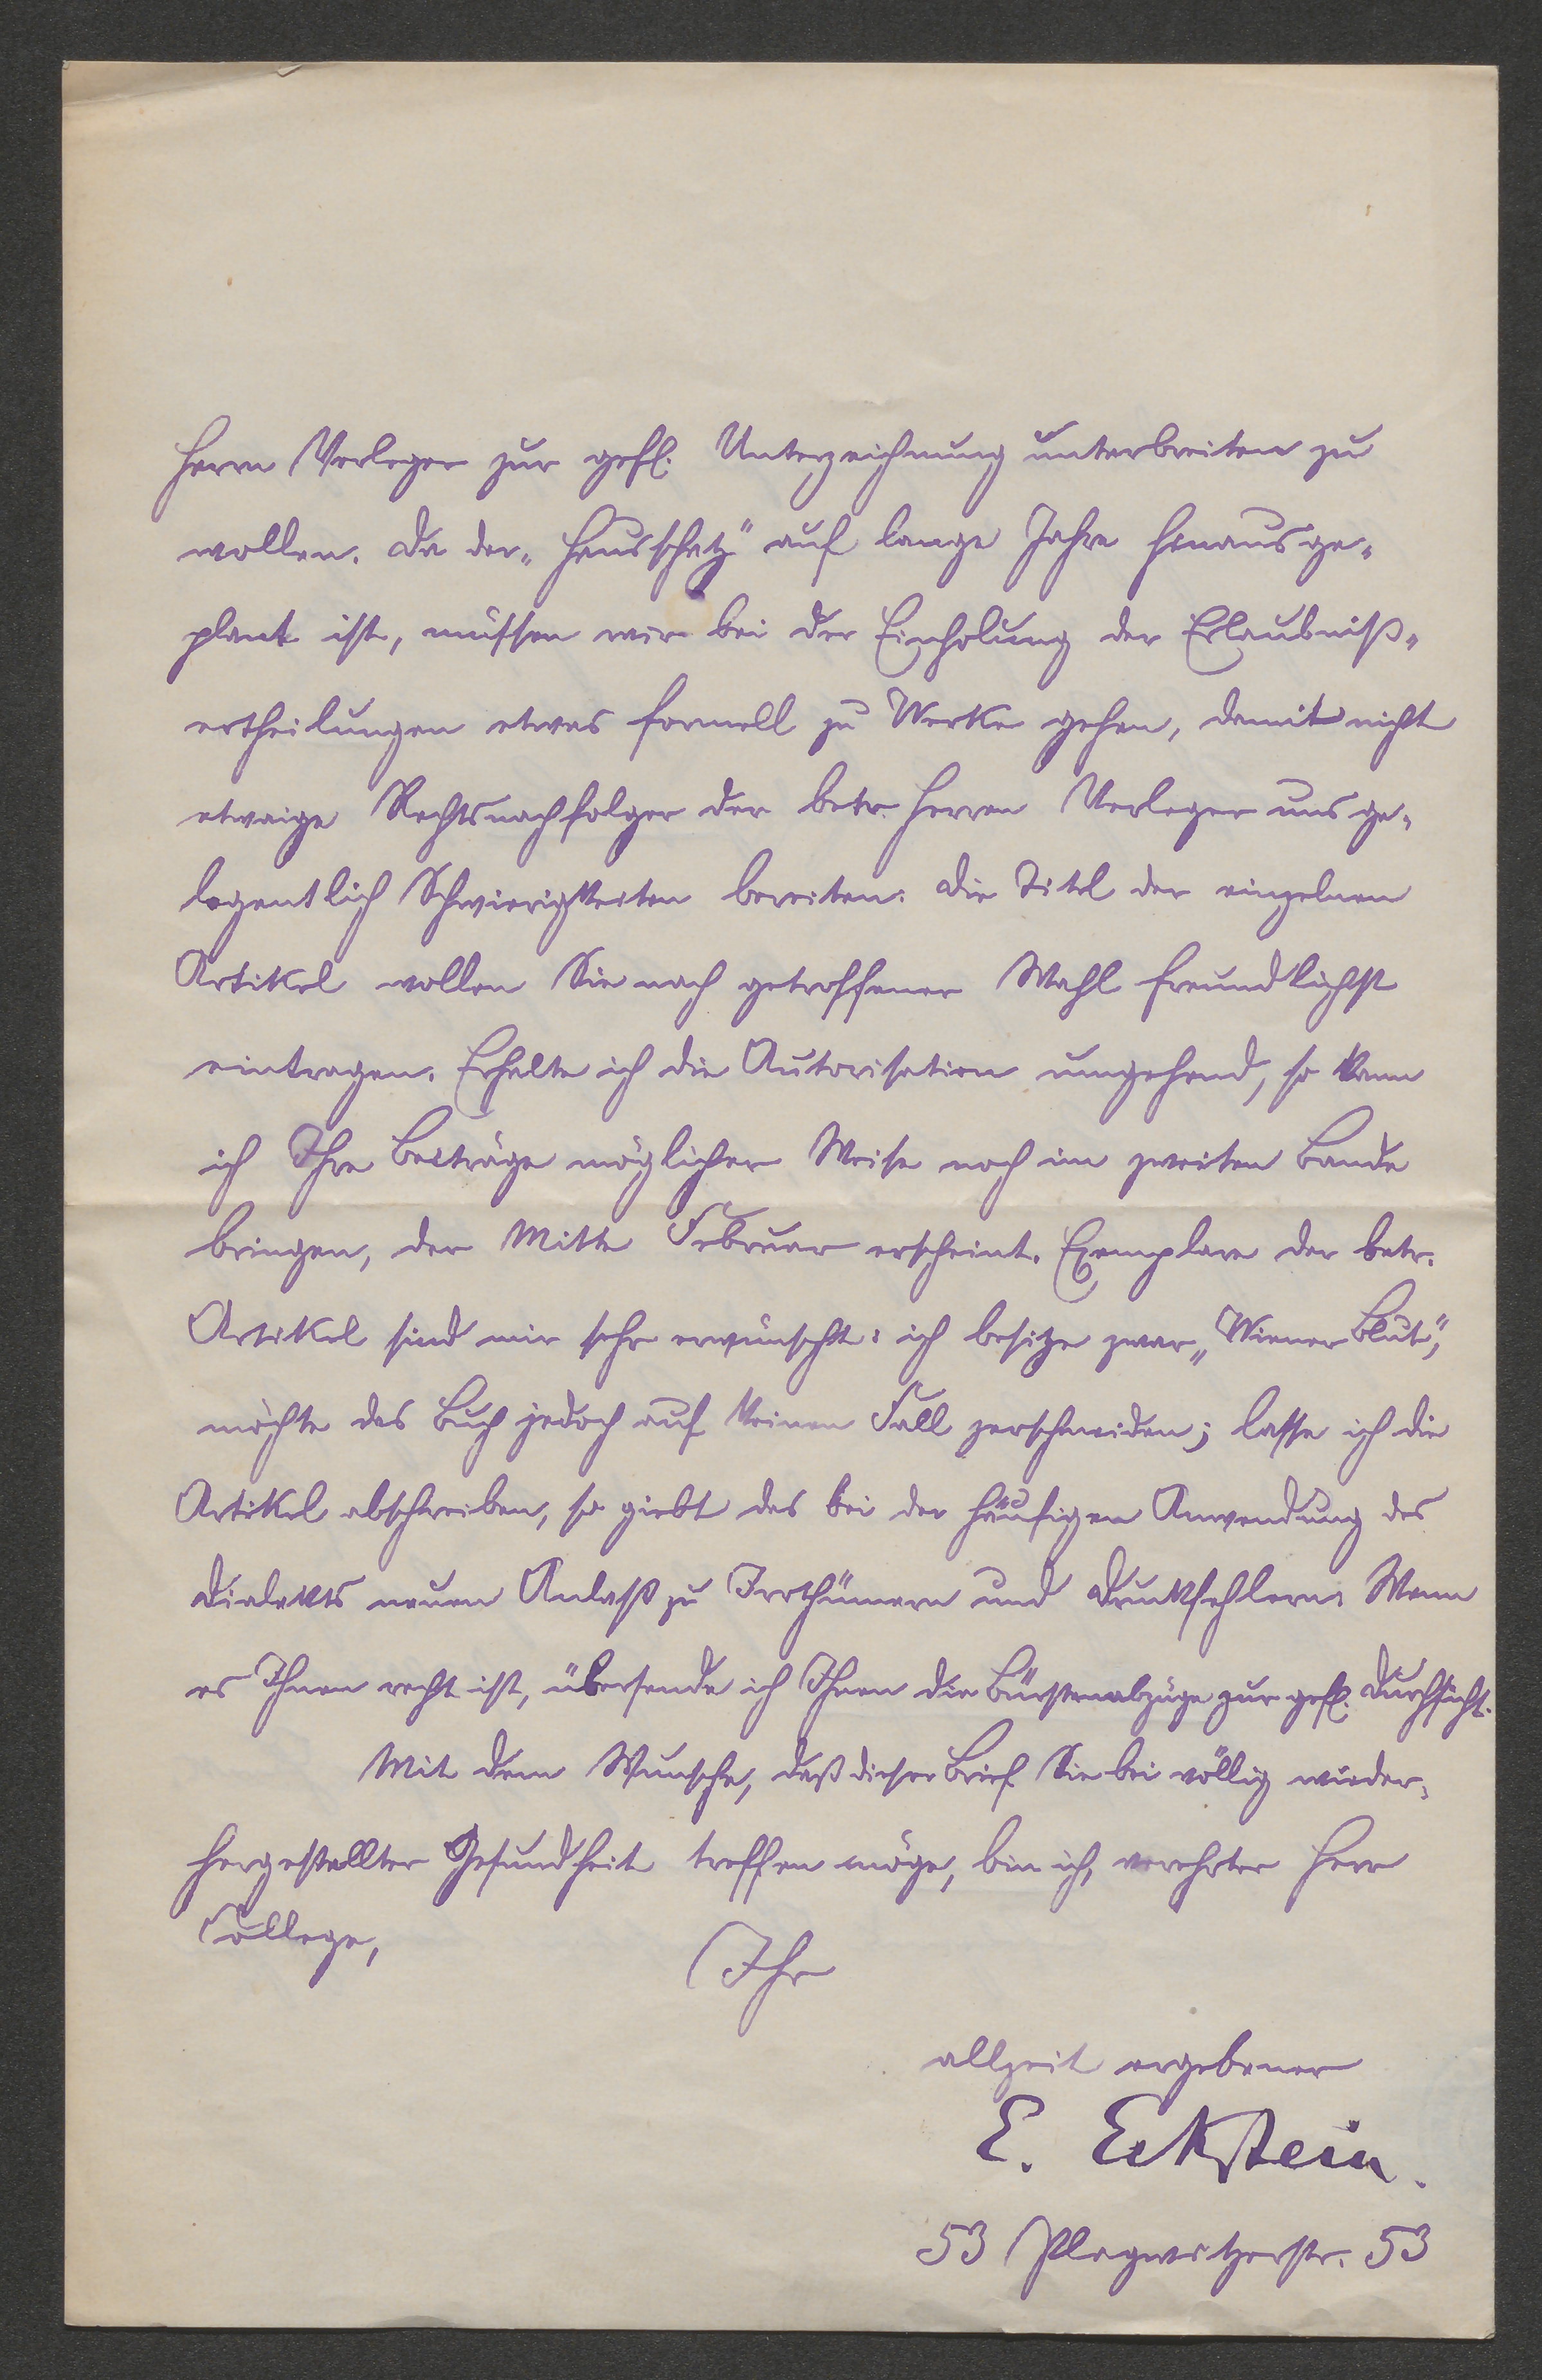 Herrn Verleger zur gefl. Unterzeichnung unterbreiten zu
wollen. Da der „Hausschatz" auf lange Jahre hinaus ge-
plant ist, müssen wir bei der Einholung der Erlaubniß-
ertheilungen etwas formell zu Werke gehen, damit nicht
etwaige Rechtsnachfolger der betr. Herren Verleger uns ge-
legentlich Schwierigkeiten bereiten. Die Titel der einzelnen
Artikel wollen Sie nach getroffener Wahl freundlichst
eintragen. Erhalte ich die Autorisation umgehend, so kann
ich Ihre Beiträge möglicher Weise noch im zweiten Bande
bringen, der Mitte Februar erscheint. Exemplare der betr.
Artikel sind mir sehr erwünscht: ich besitze zwar „Wiener Blut",
möchte das Buch jedoch auf keinen Fall zerschneiden; lasse ich die
Artikel abschreiben, so giebt das bei der häufigen Anwendung des
Dialekts neuen Anlaß zu Irrthümern und Druckfehlern. Wenn
es Ihnen recht ist, übersende ich Ihnen die Bürstenabzüge zur gefl. Durchsicht.
Mit dem Wunsche, daß dieser Brief Sie bei völlig wieder-
hergestellter Gesundheit treffen möge, bin ich, verehrter Herr
College,
Ihr
allzeit ergebener
E. Eckstein.
53 Plagwitzerstr. 53